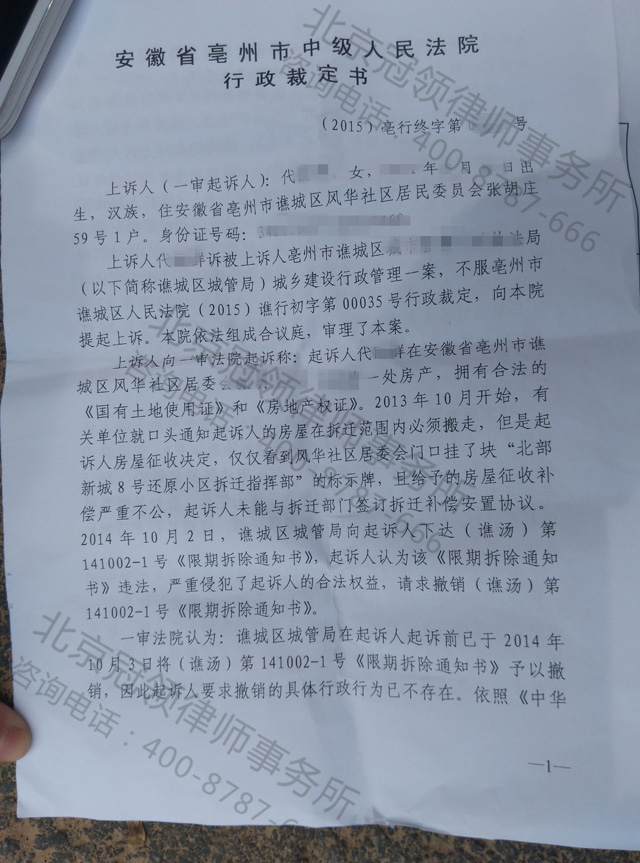 安徽省亳州市中级人民法院
行政裁定书
（2015）亳行终字第 号
上诉人（一审起诉人）：代 女， 年 月 日出
生，汉族，住安徽省亳州市谯城区风华社区居民委员会张胡庄
59号1户。身份证号码：
上诉人代 诉被上诉人亳州市谯城区 局
（以下简称谯城区城管局）城乡建设行政管理一案，不服亳州市
谯城区人民法院（2015）谯行初字第00035号行政裁定，向本院
提起上诉。本院依法组成合议庭，审理了本案。
上诉人向一审法院起诉称：起诉人代 群在安徽省亳州市谯
城区风华社区居委会 一处房产，拥有合法的
《国有土地使用证》和《房地产权证》。2013年10月开始，有
关单位就口头通知起诉人的房屋在拆迁范围内必须搬走，但是起
诉人房屋征收决定，仅仅看到风华社区居委会门口挂了块“北部
新城8号还原小区拆迁指挥部”的标示牌，且给予的房屋征收补
偿严重不公，起诉人未能与拆迁部门签订拆迁补偿安置协议。
2014年10月2日，谯城区城管局向起诉人下达（谯汤）第
141002-1号《限期拆除通知书》，起诉人认为该《限期拆除通知
书》违法，严重侵犯了起诉人的合法权益，请求撤销（谯汤）第
141002-1号《限期拆除通知书》。
一审法院认为：谯城区城管局在起诉人起诉前已于2014年
10月3日将（谯汤）第141002-1号《限期拆除通知书》予以撤
销，因此起诉人要求撤销的具体行政行为已不存在。依照《中华
—1—
北京冠领律师事务所
咨询电话：400-8787-666
北京冠领律师事务所
咨询电话：400-8787-666
北京冠领律师事务所
咨询电话：400-8787-666